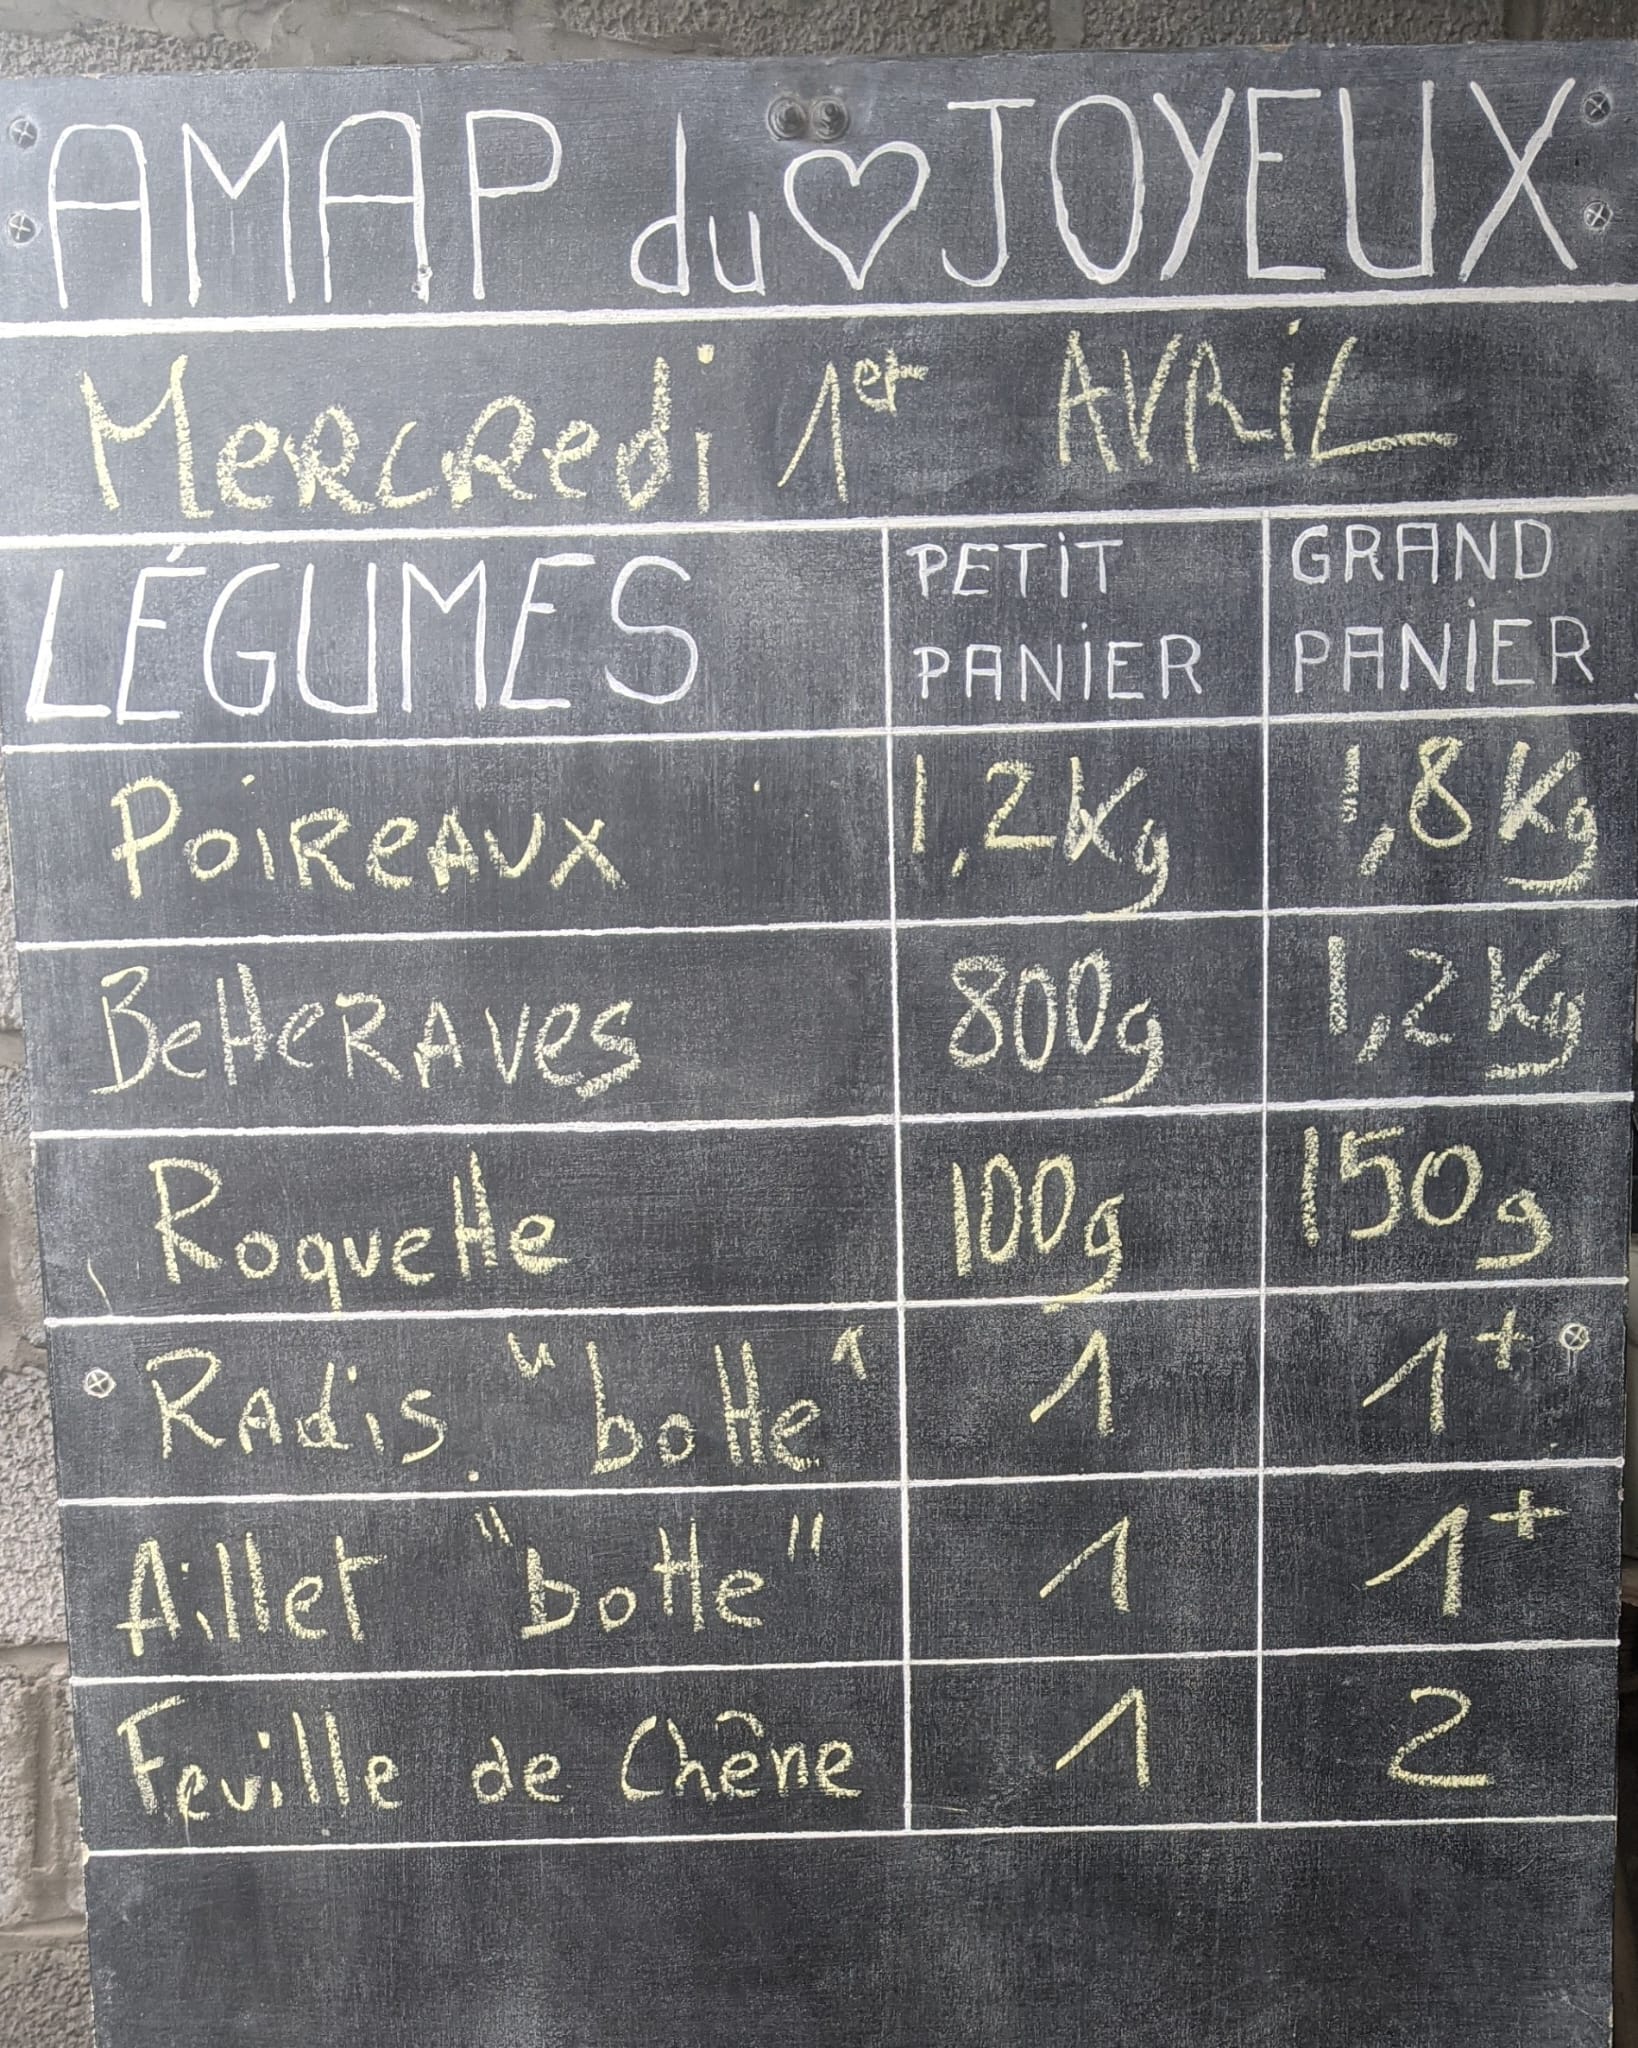 AMAP du ♡ JOYEUX
Mercredi 1er AVRIL
LÉGUMES PETIT PANIER GRAND PANIER
Poireaux 1,2 Kg 1,8 Kg
Betteraves 800g 1,2 Kg
Roquette 100g 150g
Radis "botte" 1 1+
Aillet "botte" 1 1+
Feuille de Chêne 1 2